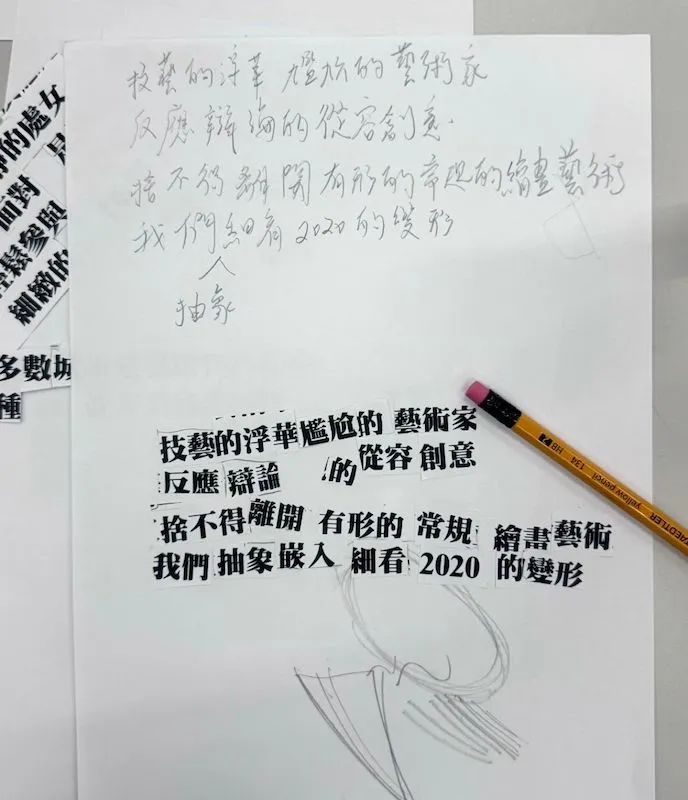 技藝的浮華 尷尬的藝術家
反應 辯論的從容創意.
捨不得離開有形的常規的繪畫藝術
我們細看2020的變形
抽象
技藝的浮華尷尬的 藝術家
反應 辯論 的 從容 創意
捨不得 離開 有形的 常規 繪畫 藝術
我們 抽象 嵌入 細看 2020 的變形
的處女
面對
輕鬆參與
細緻的
多數城
種
134 HB 2
yellow pencil
STAEDTLER